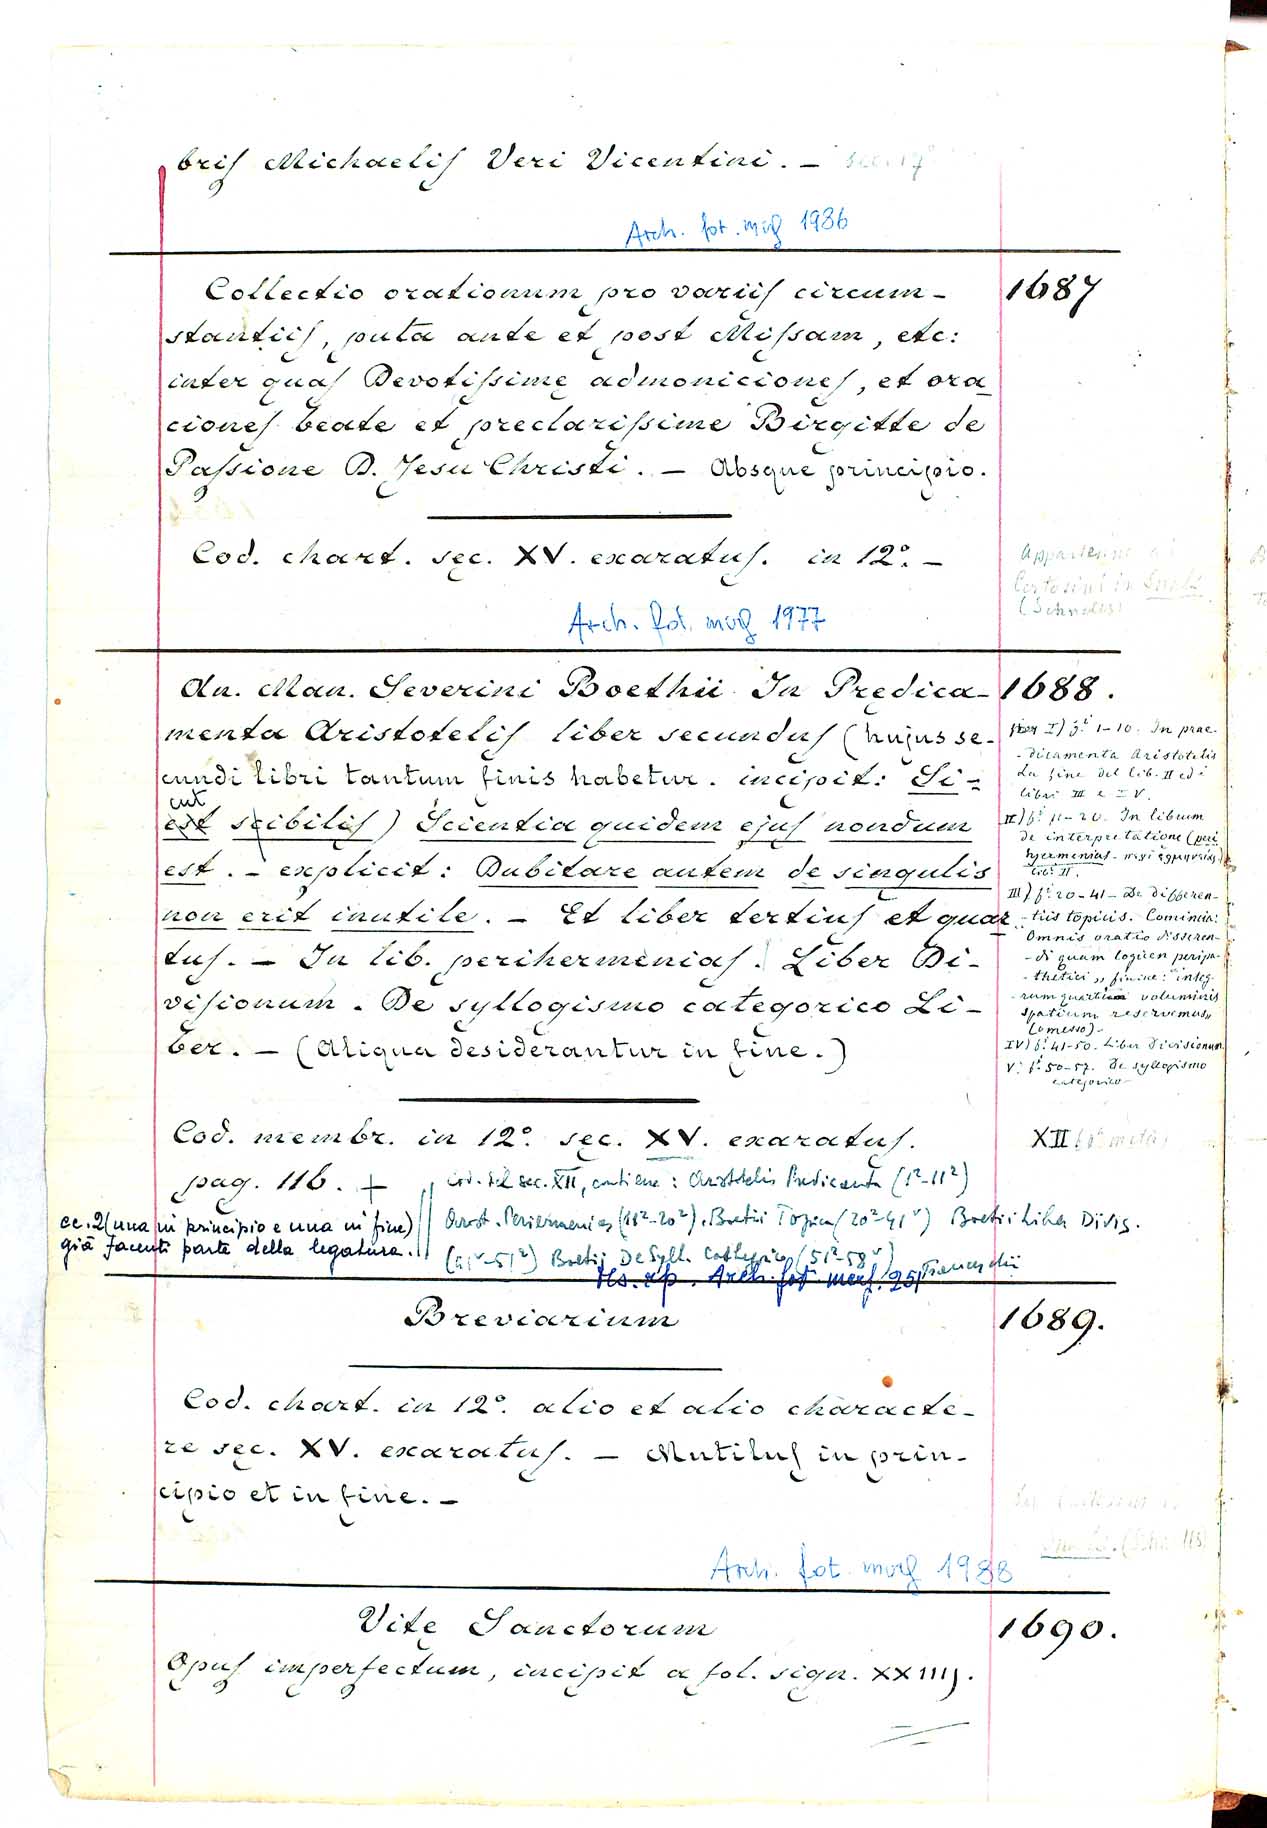 bris Michaelis Veri Vicentini. – sec. 17
Arch. fot. mof 1986
Collectio orationum pro variis circum-
1687
stantiis, puta ante et post Missam, etc:
inter quas Devotissime admoniciones, et ora
ciones beate et preclarissime Birgitte de
Passione D. Jesu Christi. – Absque principio.
Cod. chart. sec. XV. exaratus. in 12°. –
Certosini in
Arch. fot. mof 1977
An. Man. Severini Boethii In Predica-
1688.
menta Aristotelis liber secundus (hujus se-
cundi libri tantum finis habetur. incipit: Si-
cut
est scibilis) Scientia quidem ejus nondum
est. – explicit: Dubitare autem de singulis
non erit inutile. – Et liber tertius et quar
tus. – In lib. perihermenias. Liber Di-
visionum. De syllogismo categorico Li-
ber. – (Aliqua desiderantur in fine.)
I) f.i 1-10. In prae-
dicamenta Aristotelis
La fine del lib. II ed i
libri III e IV.
II) f.i 11-20. In librum
de interpretatione (peri
hyermenias - περὶ ἑρμηνείας)
lib. II.
III) f.i 20-41 – De differen-
tiis topicis. Comincia:
Omnis oratio disseren-
di quam logicen peripa-
thetici,, finisce: "integ-
rum quartum voluminis
spatium reservemus,,
(omesso) –
IV) f.i 41-50. Liber divisionum
V. f.i 50-57. De syllogismo
categorico –
Cod. membr. in 12°. sec. XV. exaratus.
XII (2a metà)
pag. 116. +
cod. del sec. XII, contiene: Aristotelis Predicamenta (1r-11r)
Arist. Periermenias (11r-20r). Boetii Topica (20r-41v) Boetii Liber Divis.
(41v-51r) Boetii De Syll. Cathegorico (51r-58v) Franceschii
cc. 2 (una in principio e una in fine)
già facenti parte della legatura.
Ms. sp. Arch. fot. mof. 251
Breviarium
1689.
Cod. chart. in 12°. alio et alio characte-
re sec. XV. exaratus. – Mutilus in prin-
cipio et in fine. –
Arch. fot. mof 1988
Vite Sanctorum
1690.
Opus imperfectum, incipit a fol. sign. XXIIIJ.